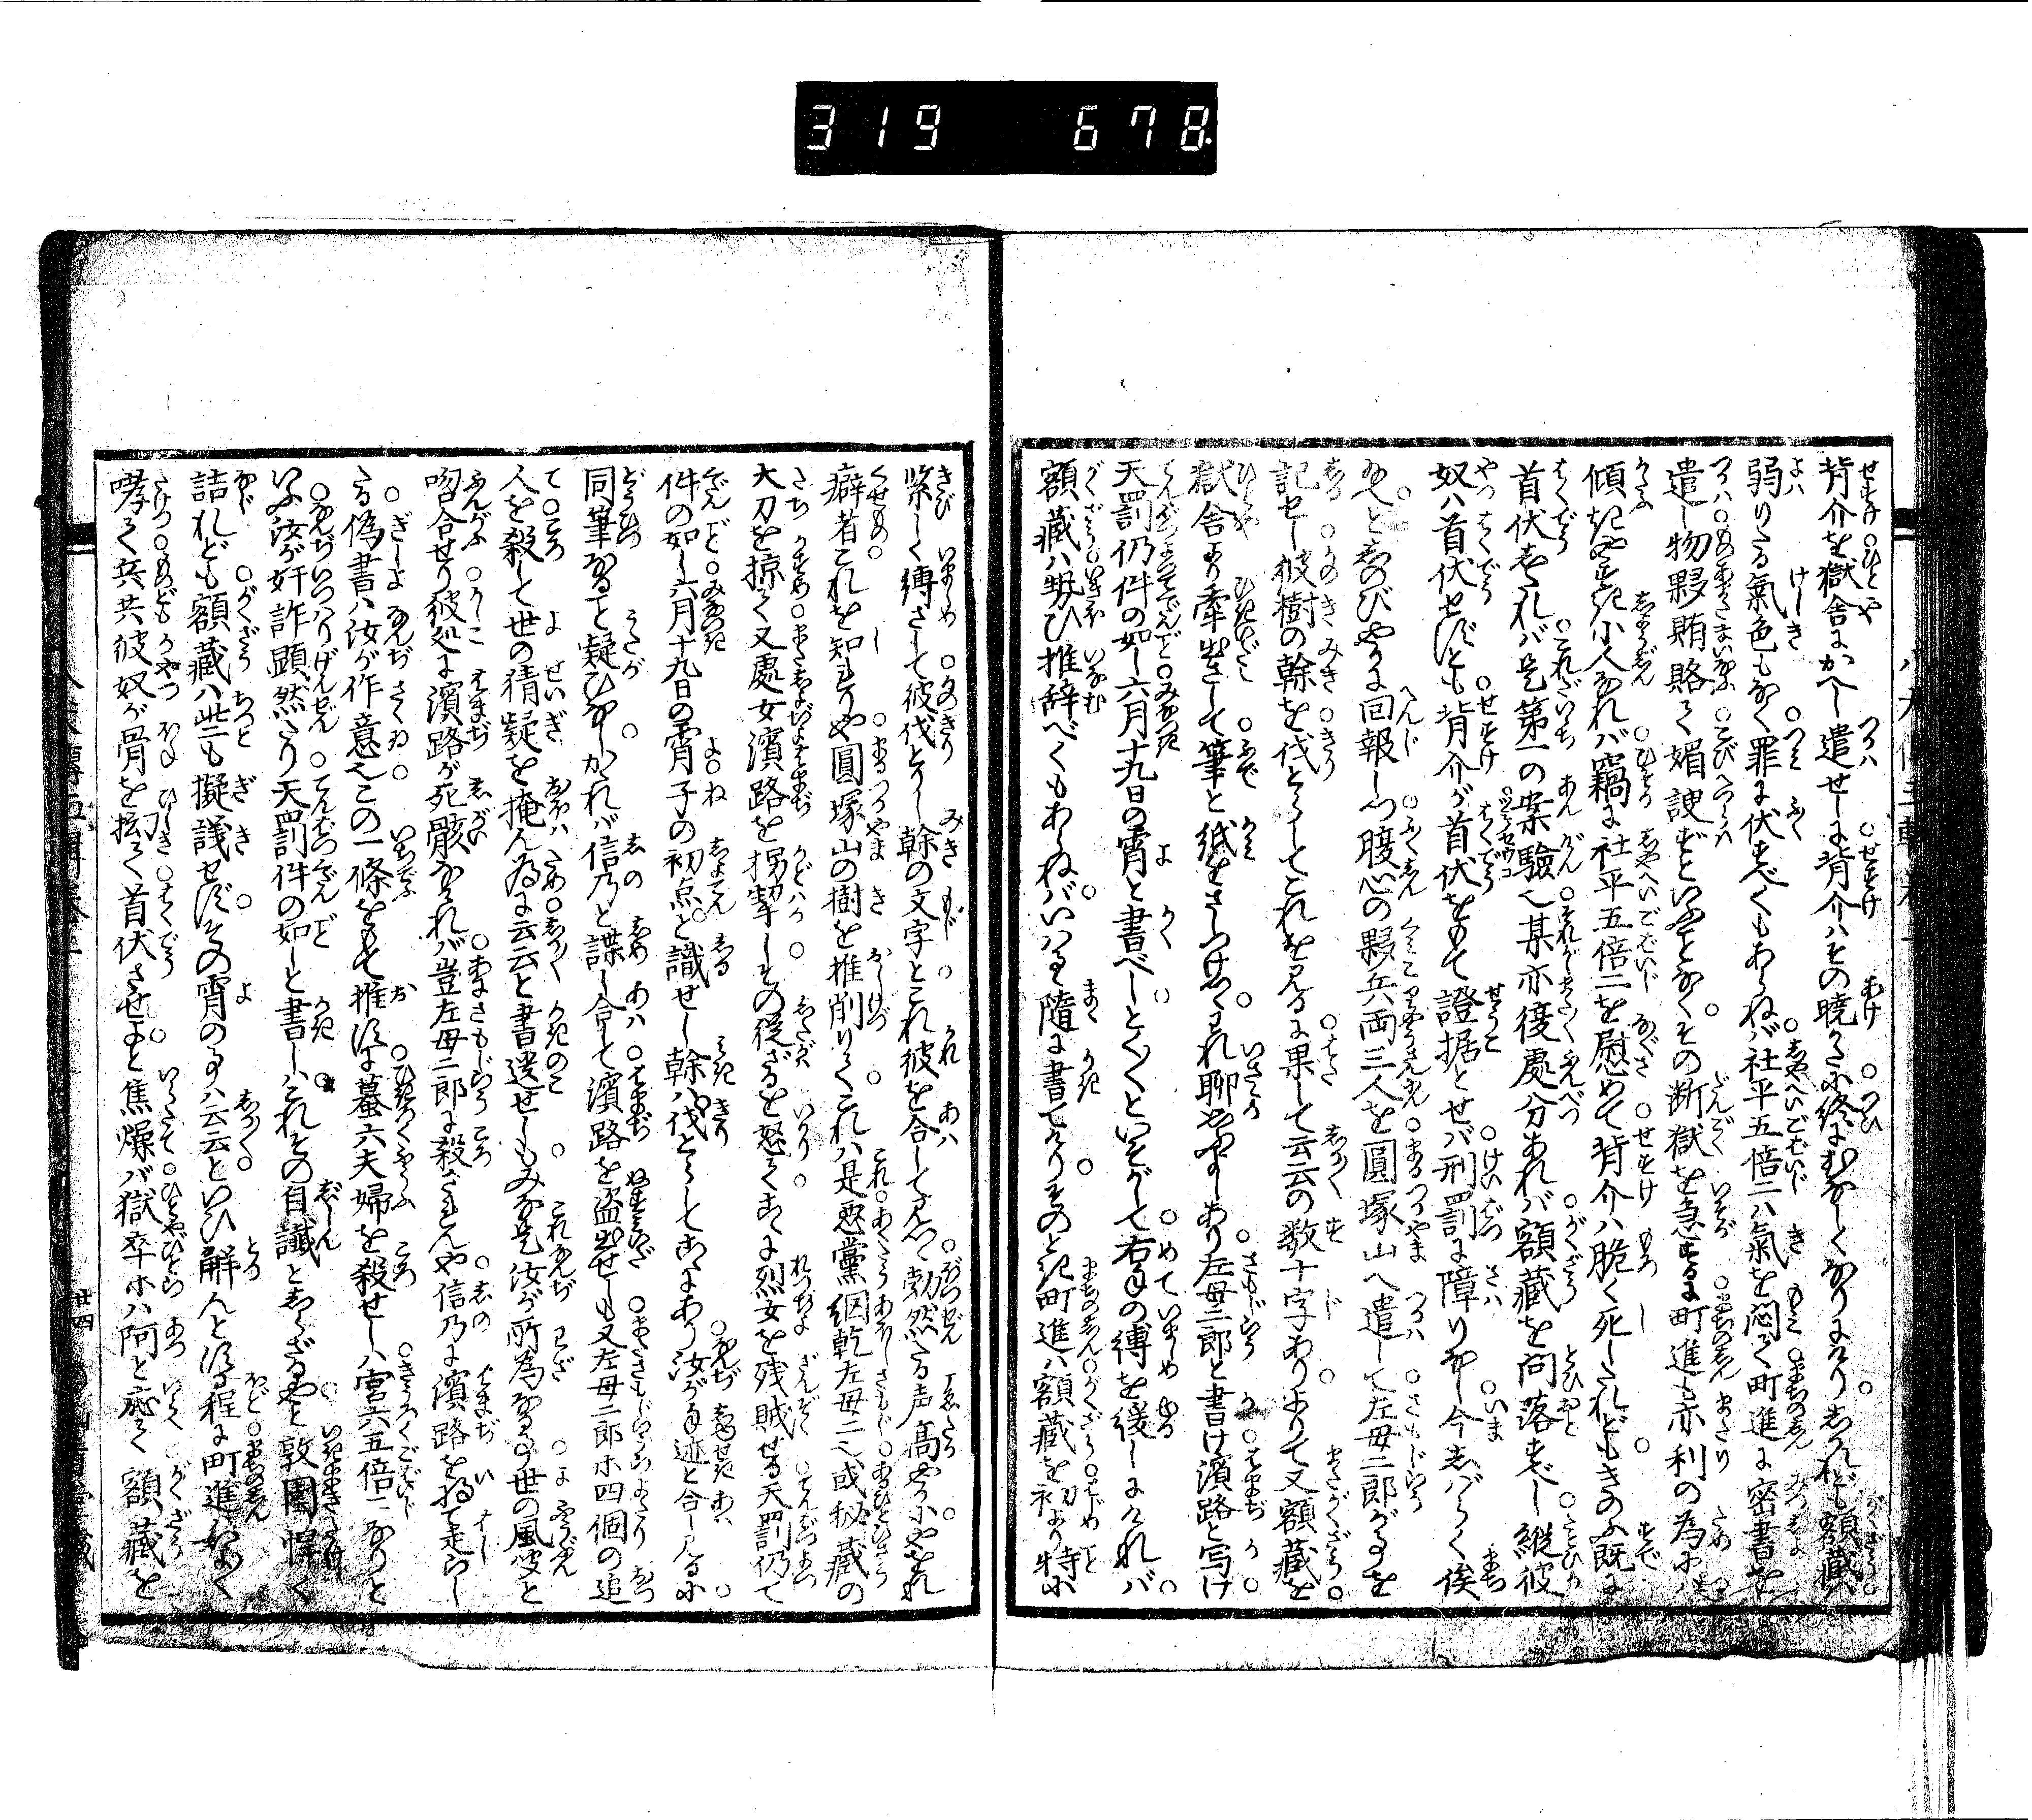 319 678
背介を獄舎にかへし遣せしに背介はその暁かたに終にむなしくなりにけりしかれども額蔵は
弱りたる氣色もなく罪に伏すべくもあらねば社平五倍二は氣を悶て町進に密書を
遣し物夥賄賂て媚諛ずといふことなくその断獄を急するに町進も亦利の為には
傾き易き小人なれば竊に社平五倍二を慰めて背介は脆く死したれどもきのふ既に
首伏したれば是第一の案驗也某亦後處分あれば額蔵を問落すべし縦彼
奴は首伏せずとも背介が首伏をもて證据とせば刑罰に障りなし今しばらく俟
ねと しのびやかに回報しつ腹心の夥兵両三人を圓塚山へ遣して左母二郎が事を
記せし彼樹の幹を伐とらしてこれを見るに果して云云の数十字ありよりて又額蔵を
獄舎より牽出さして筆と紙をさしつけしくわれ聊 あり左母二郎と書け濱路と写け
天罰仍件の如し六月十九日の霄と書べしとく/\といそがして右手の縛を緩しにければ
額蔵は勢ひ推辞べくもあらねばいはるゝ隨に書てけりそのとき町進は額蔵を初より特に
緊しく縛さして彼伐とりし幹の文字とこれ彼を合して見つゝ勃然たる声高やかにやをれ
癖者これを知れりや圓塚山の樹を推削りてこれは是悪黨網乾左母二也或秘蔵の
大刀を掠て又處女濱路を拐挈しその従ざるを怒てこゝに烈女を残賊せる天罰仍て
件の如し六月十九日の霄子の初点と識せし幹は伐とらしてこゝにあり汝が手迹と合し見るに
同筆なること疑ひなしかれば信乃と諜し合して濱路を盗出せしも又左母二郎ホ四個の追
人を殺して世の猜疑を掩ん為に云云と書遺せしもみな是汝が所為なる事世の風波と
吻合せり彼処に濱路が死骸なければ豈左母二郎に殺されんや信乃に濱路を将て走らし
たる偽書は汝が作意也この一條をもて推すに蟇六夫婦を殺せしは宮六五倍二なりと
いふ汝が奸詐顕然たり天罰件の如しと書しはこれその自讖としらざるやと敦圉悍く
詰れども額蔵は些も擬議せずその霄の事は云云といひ解んとする程に町進 なく
哮て兵共彼奴が骨を拉て首伏させよと焦燥ば獄卒ホは阿と応て額蔵を
廿四